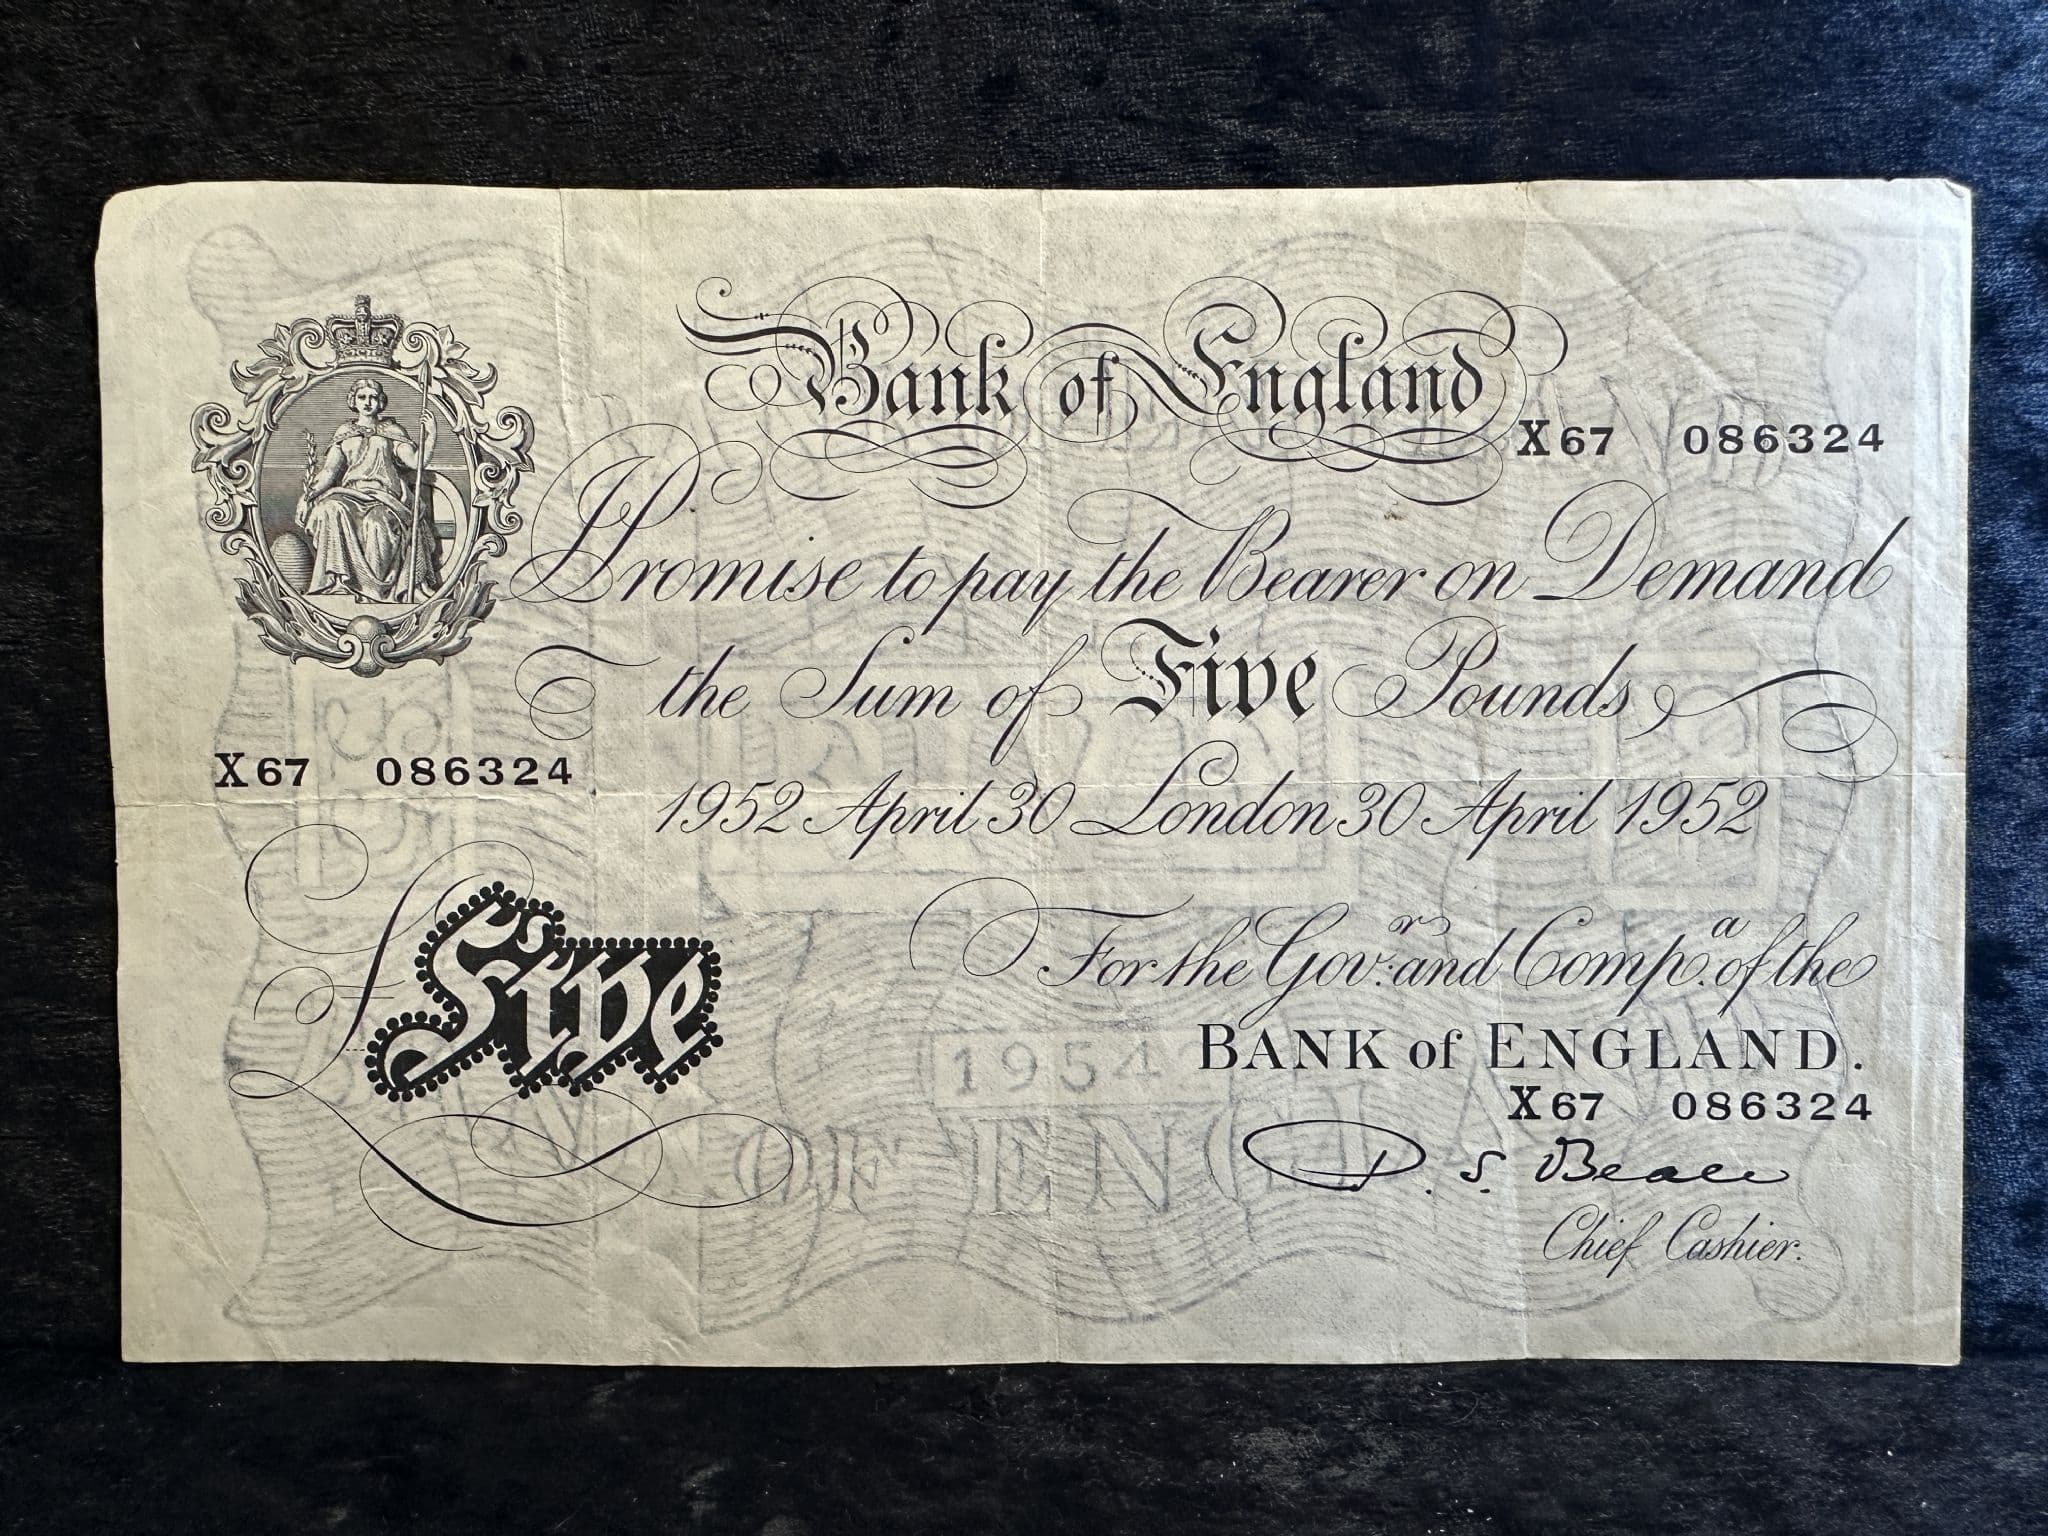 Bank of England
X67 086324
I Promise to pay the Bearer on Demand
the Sum of Five Pounds
X67 086324
1952 April 30 London 30 April 1952
£Five
For the Gov.r and Comp.a of the
BANK of ENGLAND.
1954
X67 086324
OF ENGLAN
P. S. Beale
Chief Cashier.